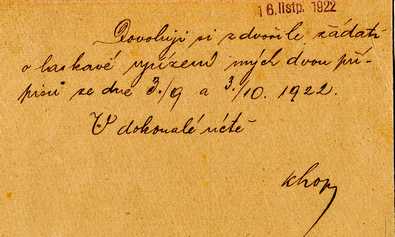 16. listp. 1922
Dovoluji si zdvořile žádati
o laskavé vyřízení mých dvou pří-
pisů ze dne 3./9 a 3./10. 1922.
V dokonalé úctě